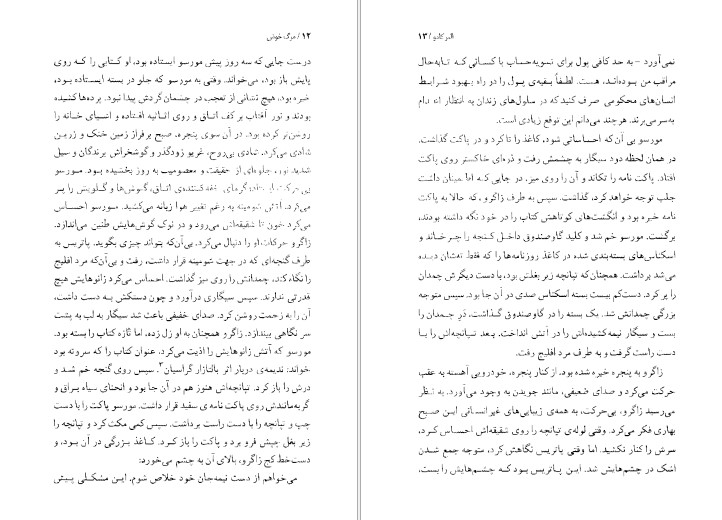 ۱۲ / مرگ خوش
درست جایی که سه روز پیش مورسو ایستاده بود، او کتابی را که روی
پایش باز بود، می‌خواند. وقتی به مورسو که جلو در بسته ایستاده بود،
خیره بود، هیچ نشانی از تعجب در چشمان گردش پیدا نبود. پرده‌ها کشیده
بودند و نور آفتاب بر کف اتاق و روی اثاثیه افتاده و اشیای خانه را
روشن‌تر کرده بود. در آن سوی پنجره، صبح بر فراز زمین خنک و زرین
شادی می‌کرد. شادی بی‌روح، غریو زودگذر و گوشخراش پرندگان و سیل
شدید نور، جلوه‌ای از حقیقت و معصومیت به روز بخشیده بود. مورسو
بی‌حرکت ایستاد؛ گرمای خفه‌کننده‌ی اتاق، گوش‌ها و گلویش را پر
می‌کرد. آتش شومینه به رغم تغییر هوا زبانه می‌کشید. مورسو احساس
می‌کرد خون تا شقیقه‌اش می‌رود و در نوک گوش‌هایش طنین می‌اندازد.
زاگرو حرکات او را دنبال می‌کرد، بی‌آن‌که بتواند چیزی بگوید. پاتریس به
طرف گنجه‌ای که در جهت شومینه قرار داشت، رفت و بی‌آن‌که مرد افلیج
را نگاه کند، چمدانش را روی میز گذاشت. احساس می‌کرد زانوهایش هیچ
قدرتی ندارند. سپس سیگاری درآورد و چون دستکش به دست داشت،
آن را به زحمت روشن کرد. صدای خفیفی باعث شد سیگار به لب به پشت
سر نگاهی بیندازد. زاگرو همچنان به او زل زده، اما تازه کتاب را بسته بود.
مورسو که آتش زانوهایش را اذیت می‌کرد، عنوان کتاب را که سروته بود
خواند: ندیمه‌ی دربار اثر بالتازار گراسیان۳. سپس روی گنجه خم شد و
درش را باز کرد. تپانچه‌اش هنوز هم در آن جا بود و انحنای سیاه براق و
گربه‌مانندش روی پاکت نامه‌ی سفید قرار داشت. مورسو پاکت را با دست
چپ و تپانچه را با دست راست برداشت. سپس کمی مکث کرد و تپانچه را
زیر بغل چپش فرو برد و پاکت را باز کرد. کاغذ بزرگی در آن بود، و
دست‌خط کج زاگرو، بالای آن به چشم می‌خورد:
می‌خواهم از دست نیمه‌جان خود خلاص شوم. این مشکلی پیش
آلبر کامو / ۱۳
نمی‌آورد - به حد کافی پول برای تسویه‌حساب با کسانی که تابه‌حال
مراقب من بوده‌اند، هست. لطفاً بقیه‌ی پول را در راه بهبود شرایط
انسان‌های محکومی صرف کنید که در سلول‌های زندان به انتظار اعدام
به‌سر می‌برند. هرچند می‌دانم این توقع زیادی است.
مورسو بی آن‌که احساساتی شود، کاغذ را تا کرد و در پاکت گذاشت.
در همان لحظه دود سیگار به چشمش رفت و ذره‌ای خاکستر روی پاکت
افتاد. پاکت نامه را تکاند و آن را روی میز، در جایی که اطمینان داشت
جلب توجه خواهد کرد، گذاشت. سپس به طرف زاگرو، که حالا به پاکت
نامه خیره بود و انگشت‌های کوتاهش کتاب را در خود نگه داشته بودند،
برگشت. مورسو خم شد و کلید گاوصندوق داخل گنجه را چرخاند و
اسکناس‌های بسته‌بندی شده در کاغذ روزنامه‌ها را که فقط لبه‌شان دیده
می‌شد برداشت. همچنان‌که تپانچه زیر بغلش بود، با دست دیگرش چمدان
را پر کرد. دست‌کم بیست بسته اسکناس صدی در آن جا بود. سپس متوجه
بزرگی چمدانش شد. یک بسته را در گاوصندوق گذاشت، در چمدان را
بست و سیگار نیمه‌کشیده‌اش را در آتش انداخت. بعد تپانچه‌اش را با
دست راست گرفت و به طرف مرد افلیج رفت.
زاگرو به پنجره خیره شده بود. از کنار پنجره، خودرویی آهسته به عقب
حرکت می‌کرد و صدای ضعیفی، مانند جویدن به وجود می‌آورد. به نظر
می‌رسید زاگرو، بی‌حرکت، به همه‌ی زیبایی‌های غیرانسانی این صبح
بهاری فکر می‌کرد. وقتی لوله‌ی تپانچه را روی شقیقه‌اش احساس کرد،
سرش را کنار نکشید. اما وقتی پاتریس نگاهش کرد، متوجه جمع شدن
اشک در چشم‌هایش شد. این پاتریس بود که چشم‌هایش را بست.